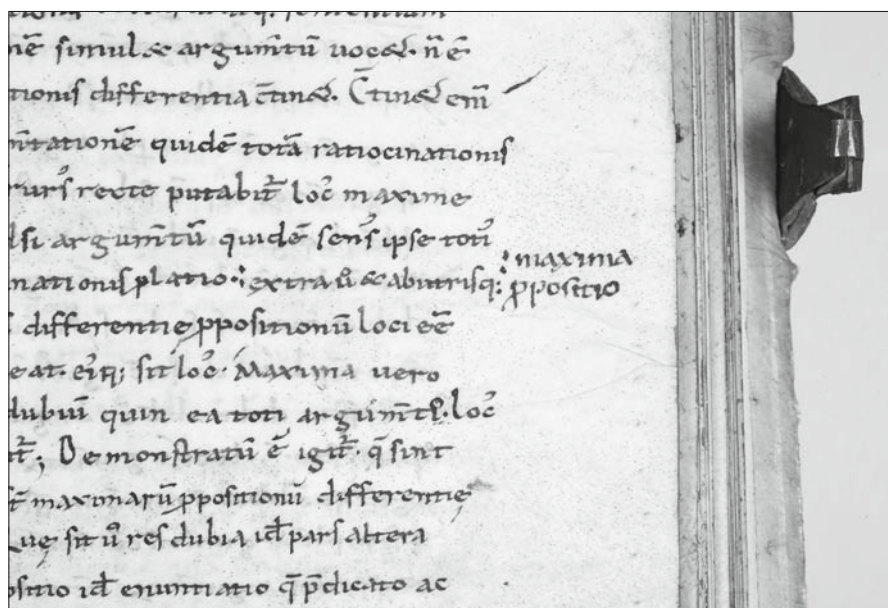 sententiam
nē simul & argum̄tū uoc&. n̄ ē
tionis differentia c̄tin&. C̄tin& eni̅
m̄tationē quidē totā ratiocinationis
rurs᾽ recte putabit̄ loc᾽ maxime
si argum̄tū quidē sens᾽ ipse toti᾽
nationis ꝓlatio·: extra ū & ab utrisq:
:maxima
ꝓpositio
differentie ꝓpositionū loci eē
eat. sit loc᾽. Maxima vero
dubiū quin ea toti argum̄ti loc᾽
t̄; Demonstratū ē igit̄. q̄ sint
t̄ maximarū ꝓpositionū differentie
Que sit ū res dubia id̄ pars altera
ositio id̄ enuntiatio q̄ p̄dicato ac